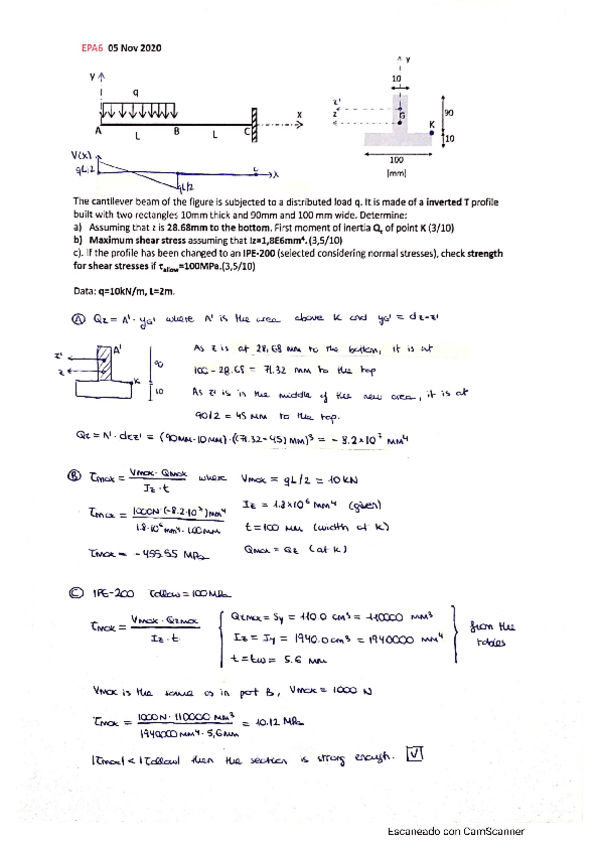 EPA6 05 Nov 2020
y
q
A
B
C
x
L
L
V(x)
qL/2
x
qL/2
y
10
z'
z
G
K
90
10
100
[mm]
The cantilever beam of the figure is subjected to a distributed load q. It is made of a inverted T profile
built with two rectangles 10mm thick and 90mm and 100 mm wide. Determine:
a) Assuming that z is 28.68mm to the bottom. First moment of inertia Qz of point K (3/10)
b) Maximum shear stress assuming that Iz=1,8E6mm⁴.(3,5/10)
c). If the profile has been changed to an IPE-200 (selected considering normal stresses), check strength
for shear stresses if τallow=100MPa.(3,5/10)
Data: q=10kN/m, L=2m.
Ⓐ Qz = A'·yG' where A' is the area above K and yG' = dz-z'
z'
z
A'
K
90
10
As z is at 28,68 mm to the bottom, it is at
100 - 28.68 = 71.32 mm to the top
As z' is in the middle of the new area, it is at
90/2 = 45 mm to the top.
Qz = A'·dzz' = (90mm·10mm)·((71.32-45)mm)³ = -8.2×10³ mm⁴
Ⓑ τmax = Vmax·Qmax / Iz·t where Vmax = qL/2 = 10kN
τmax = 1000N·(-8.2·10³)mm⁴ / 1.8·10⁶mm⁴·100mm
Iz = 1.8×10⁶ mm⁴ (given)
t=100 mm (width at K)
τmax = -455.55 MPa
Qmax = Qz (at K)
Ⓒ IPE-200 τallow = 100MPa
τmax = Vmax·Qzmax / Iz·t
Qzmax = Sy = 110.0 cm³ = 110000 mm³
Iz = Iy = 1940.0cm³ = 1940000 mm⁴
t = tw = 5.6 mm
from the
tables
Vmax is the same as in part B, Vmax = 1000 N
τmax = 1000N·110000 mm³ / 1940000mm⁴·5,6mm = 10.12 MPa
|τmax| < |τallow| then the section is strong enough. √
Escaneado con CamScanner